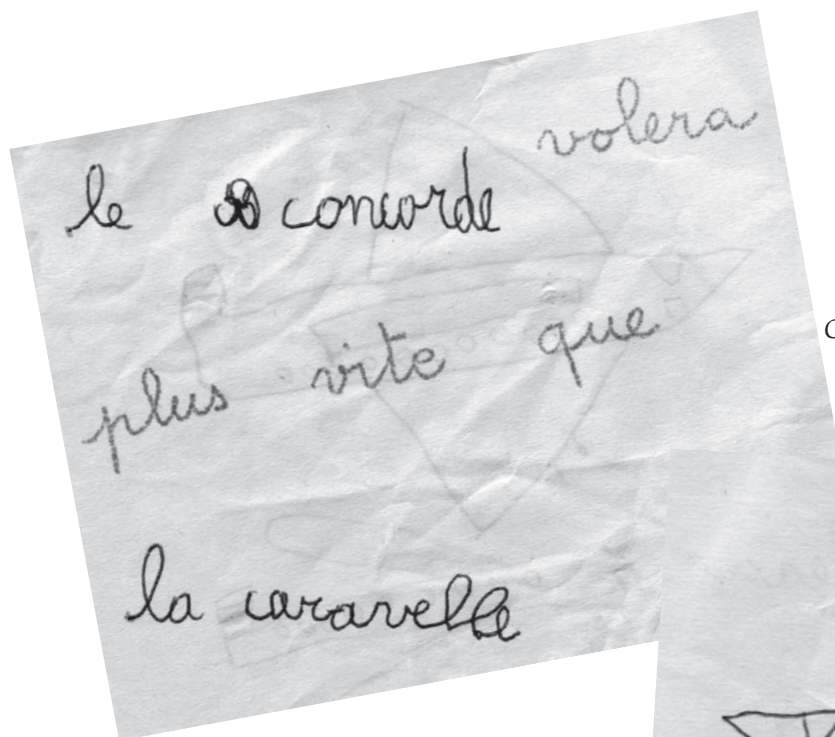 le concorde volera
plus vite que
la caravelle